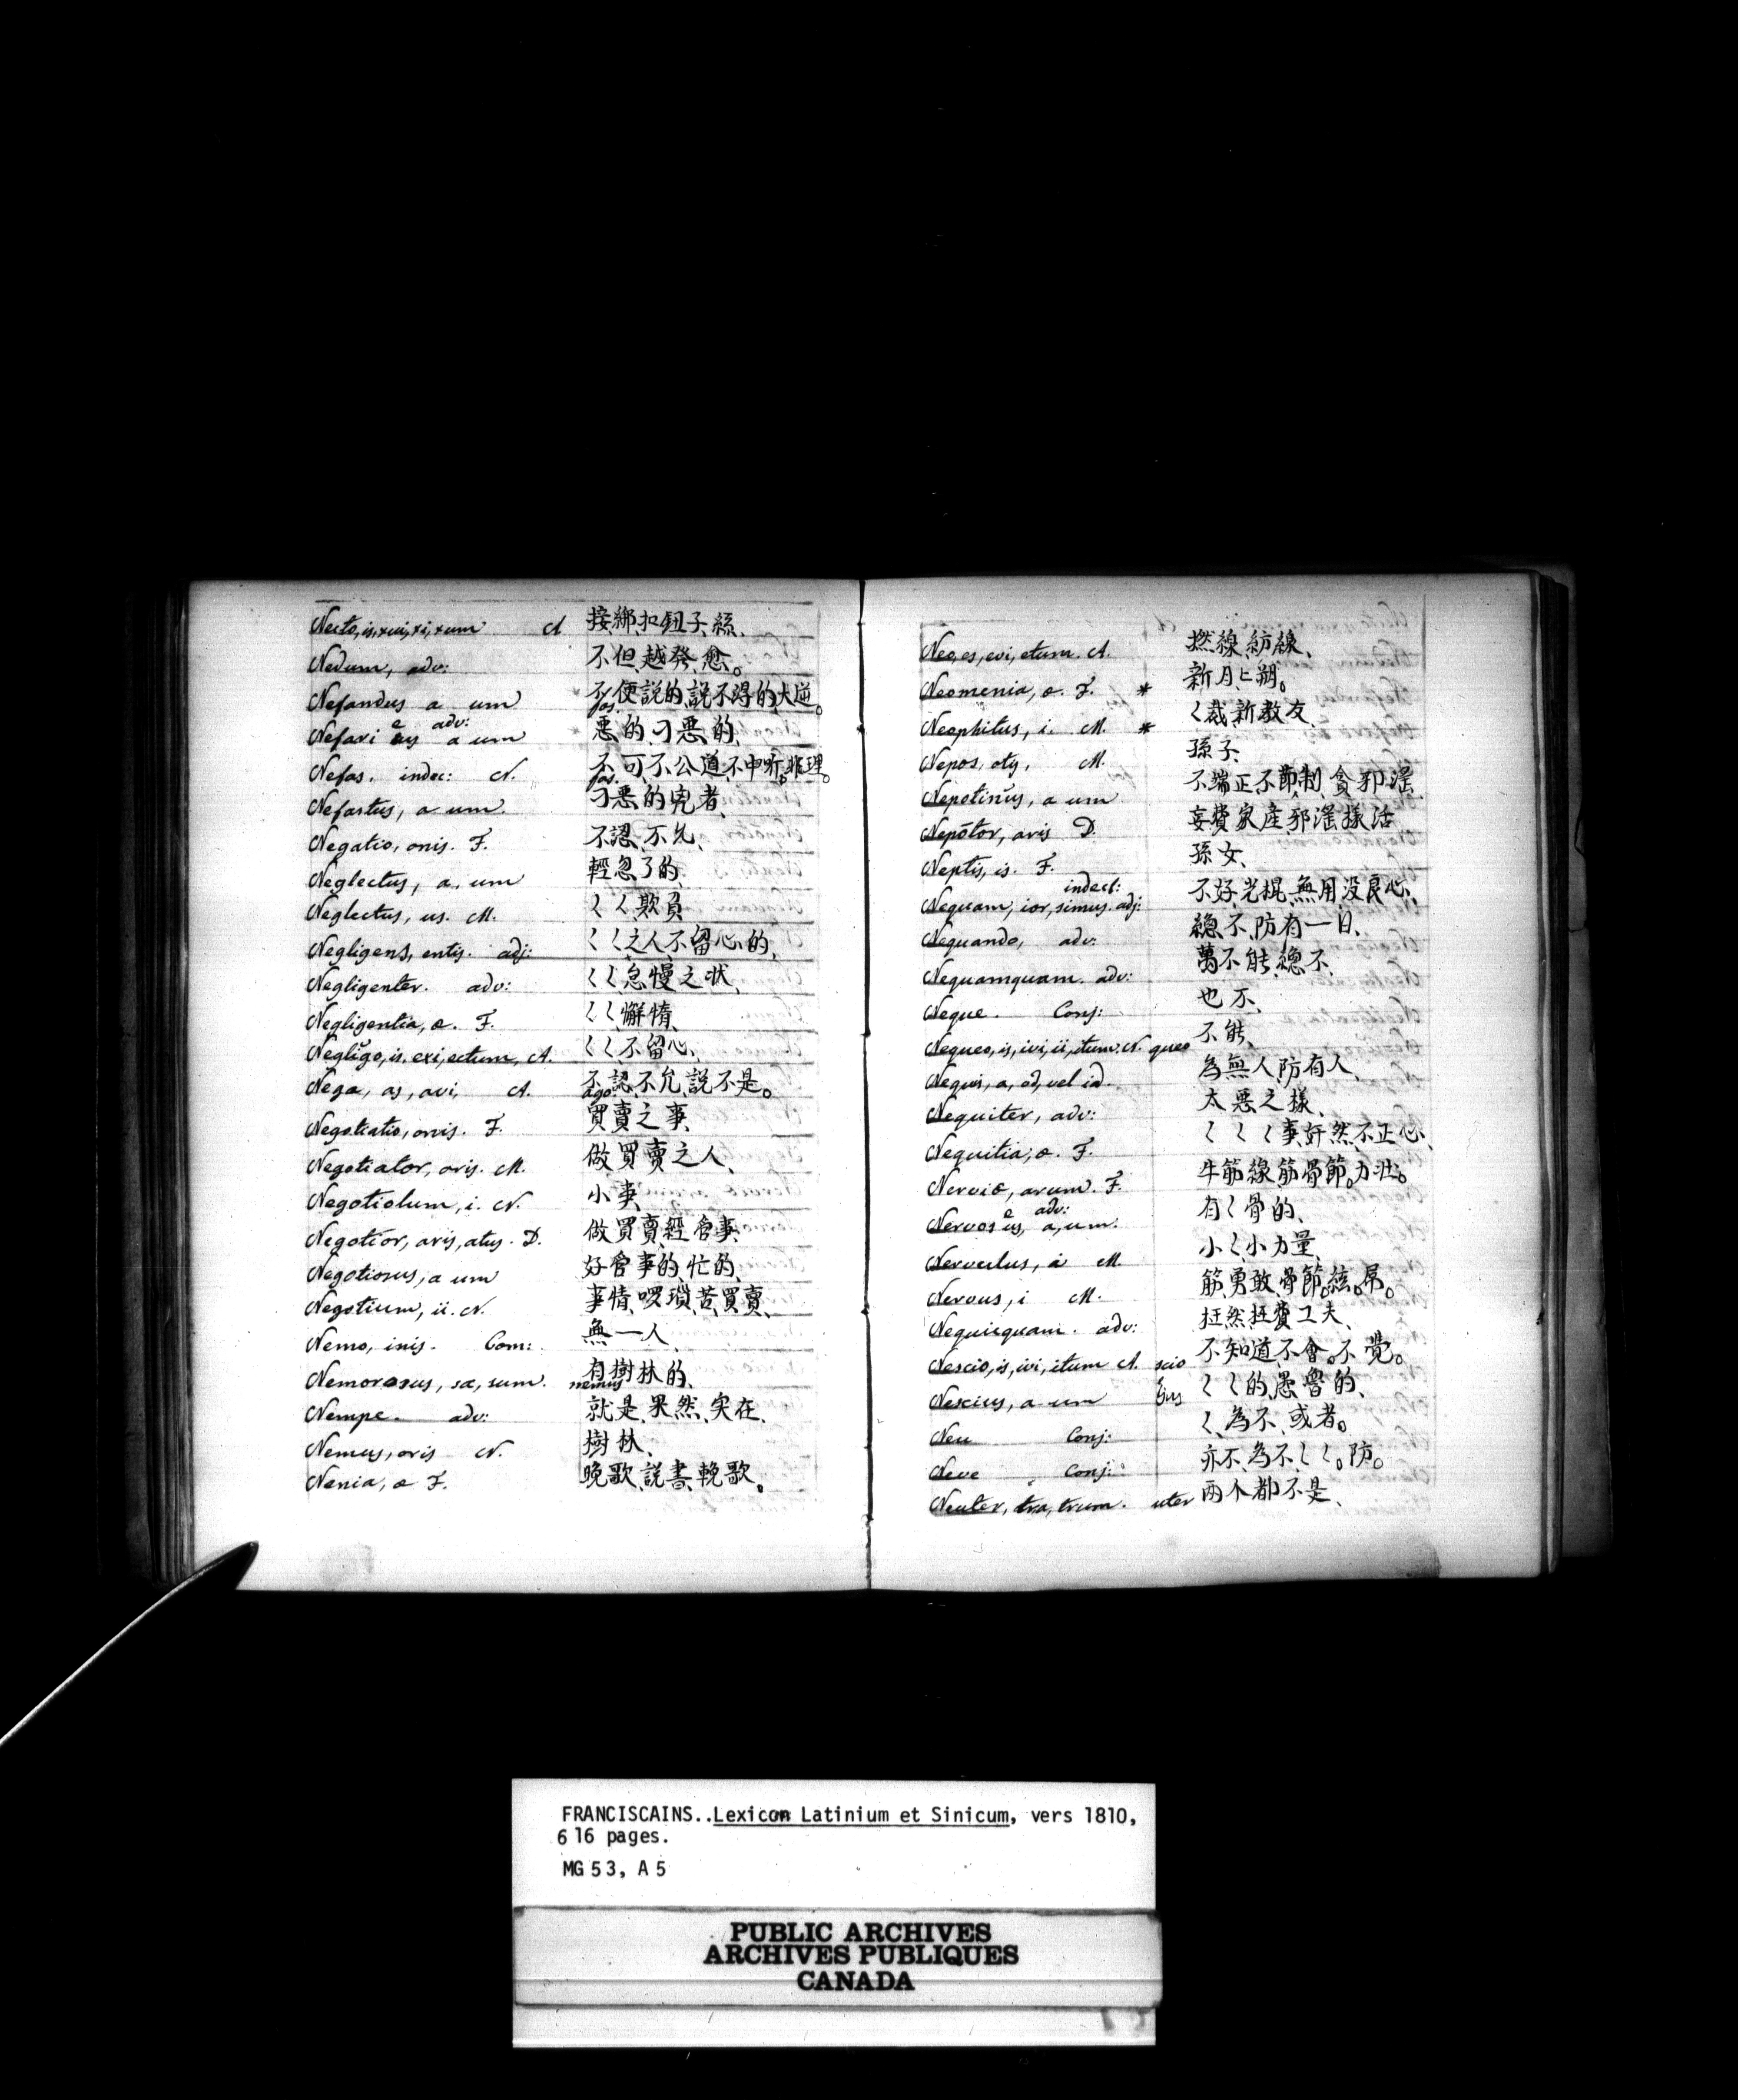 Necto, is, xui, xi, xum A 接、綁、扣鈕子、絲、
Nedum, adv: 不但、越發、愈。
Nefandus a um 不便說的、說不得的、大逆。
Nefari e us adv: a um fas. 惡的、刁惡的、
Nefas. indec: N. 不可、不公道、不中听。非理。
Nefastus, a um. fas. 刁惡的、兇者、
Negatio, onis. F. 不認、不允、
Neglectus, a, um 輕忽了的、
Neglectus, us. M. 〱〱、欺負、
Negligens, entis. adj: 〱〱之人、不留心的、
Negligenter. adv: 〱〱、怠慢之狀、
Negligentia, æ. F. 〱〱、懈惰、
Negligo, is. exi, ectum, A. 〱〱、不留心、
Nego, as, avi, A. 不認、不允、說不是。
Negotiatio, onis. F. ago. 買賣之事、
Negotiator, oris. M. 做買賣之人、
Negotiolum, i. N. 小事、
Negotior, aris, atus. D. 做買賣、經管事、
Negotiosus, a um 好管事的、忙的、
Negotium, ii. N. 事情、啰瑣、苦、買賣、
Nemo, inis. Com: 無一人、
Nemorosus, sa, sum. nemus 有樹林的、
Nempe. adv: 就是、果然、实在、
Nemus, oris N. 樹林、
Nenia, æ F. 晚歌、説書、輓歌。
Neo, es, evi, etum. A. 撚線、紡線、
Neomenia, æ. F. * 新月、匕朔。
Neophitus, i. M. * 〱裁、新教友、
Nepos, otis, M. 孫子、
Nepotinus, a um 不端正、不節制、貪邪滛、
Nepōtor, aris D. 妄費家產、邪滛様活
Neptis, is. F. 孫女、
Nequam, ior, simus. adj: indecl: 不好、光棍、無用、没良心、
Nequando, adv: 總不、防有一日、
Nequamquam. adv: 萬不能、總不、
Neque. Conj: 也不、
Nequeo, is, ivi, ii, itum. N. queo 不能、
Nequis, a, od, vel id. 為無人、防有人、
Nequiter, adv: 太惡之樣、
Nequitia, æ. F. 〱〱〱事、奸然、不正心、
Nerviæ, arum. F. 牛筋線、筋、骨節。力壮。
Nervos e us, adv: a, um. 有〱骨的、
Nervulus, i M. 小〱、小力量、
Nervus, i M. 筋、勇敢、骨節。絃。屌。
Nequicquam. adv: 枉然、枉費工夫、
Nescio, is, ivi, itum A. scio 不知道、不會。不覺。
Nescius, a um Ejus 〱〱的、愚魯的、
Neu Conj: 〱、為不、或者。
Neve Conj: 亦不、為不、〱〱。防。
Neuter, tra, trum. uter 兩个都不是、
FRANCISCAINS..Lexicon Latinium et Sinicum, vers 1810,
616 pages.
MG 53, A 5
PUBLIC ARCHIVES
ARCHIVES PUBLIQUES
CANADA